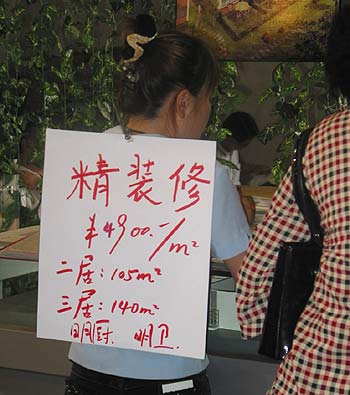 精装修
¥4900.-/m²
二居：105m²
三居：140m²
明厨. 明卫.